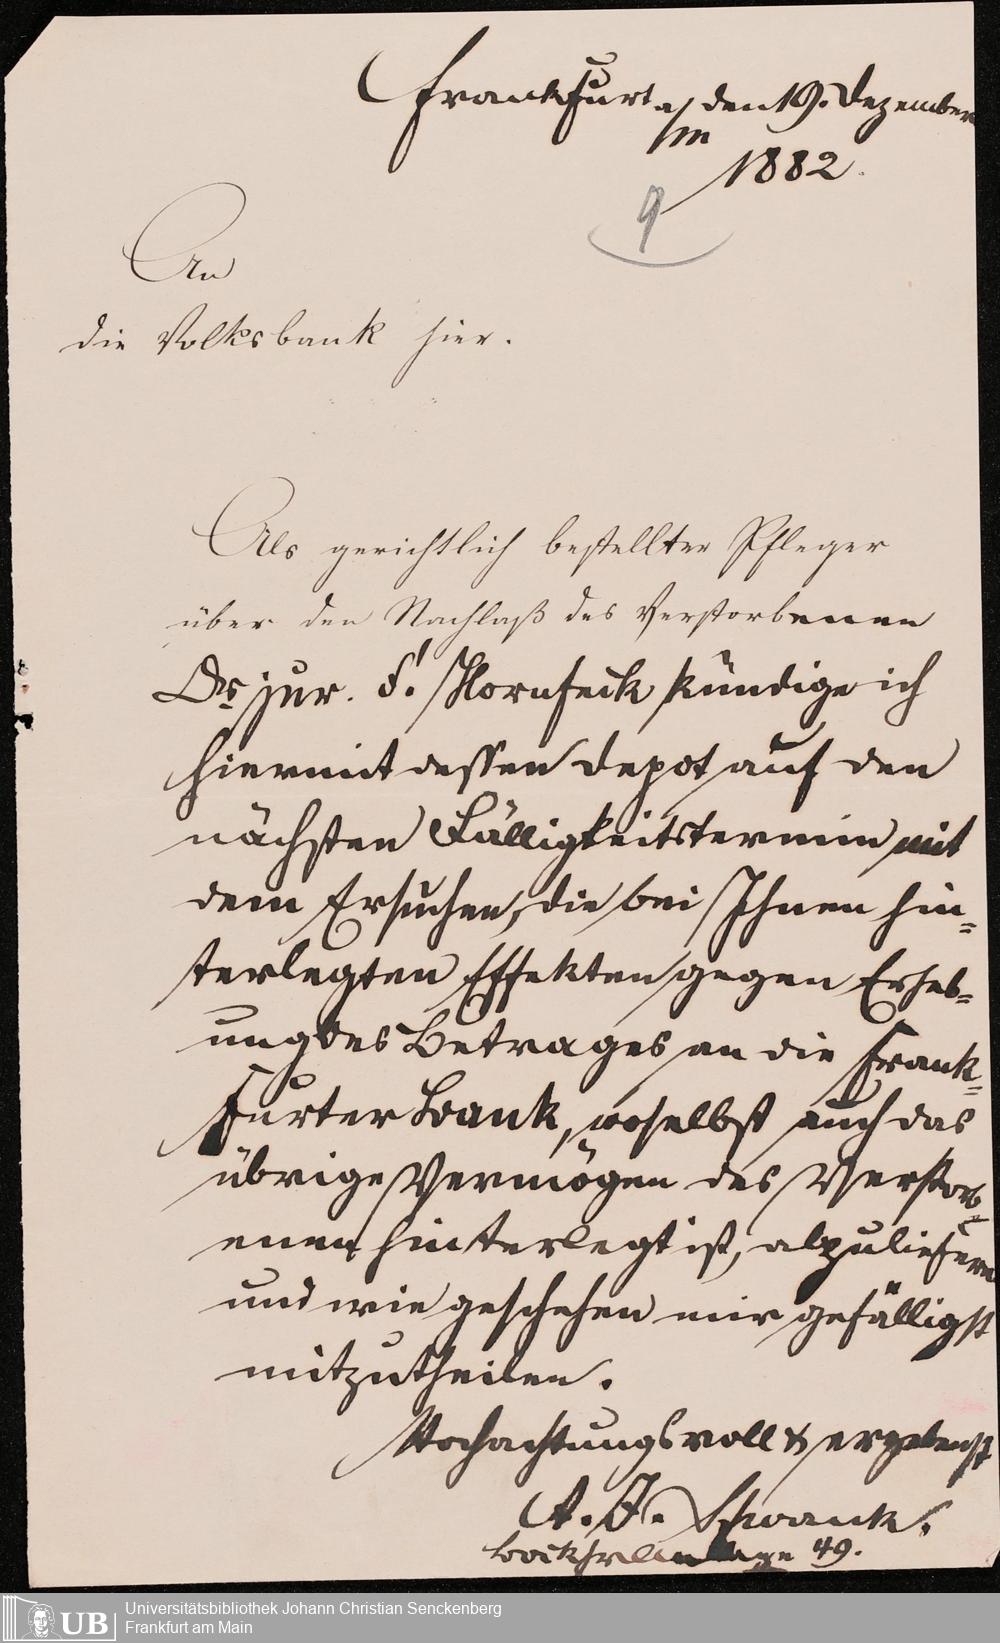 Frankfurt a/ den 19. Dezember
/m
1882.
9
An
die Volksbank hier.
Als gerichtlich bestellter Pfleger
über den Nachlaß des Verstorbenen
Dr jur. F. Hornfeck kündige ich
hiermit dessen Depot auf den
nächsten Fälligkeitstermin mit
dem Ersuchen, die bei Ihnen hin=
terlegten Effekten gegen Erheb=
ung des Betrages an die Frank=
furter Bank, woselbst auch das
übrige Vermögen des Verstorb=
enen hinterlegt ist, abzuliefern
und wie geschehen mir gefälligst
mitzutheilen.
Hochachtungsvoll & ergebenst
A. J. Schwank.
49.
UB
Universitätsbibliothek Johann Christian Senckenberg
Frankfurt am Main